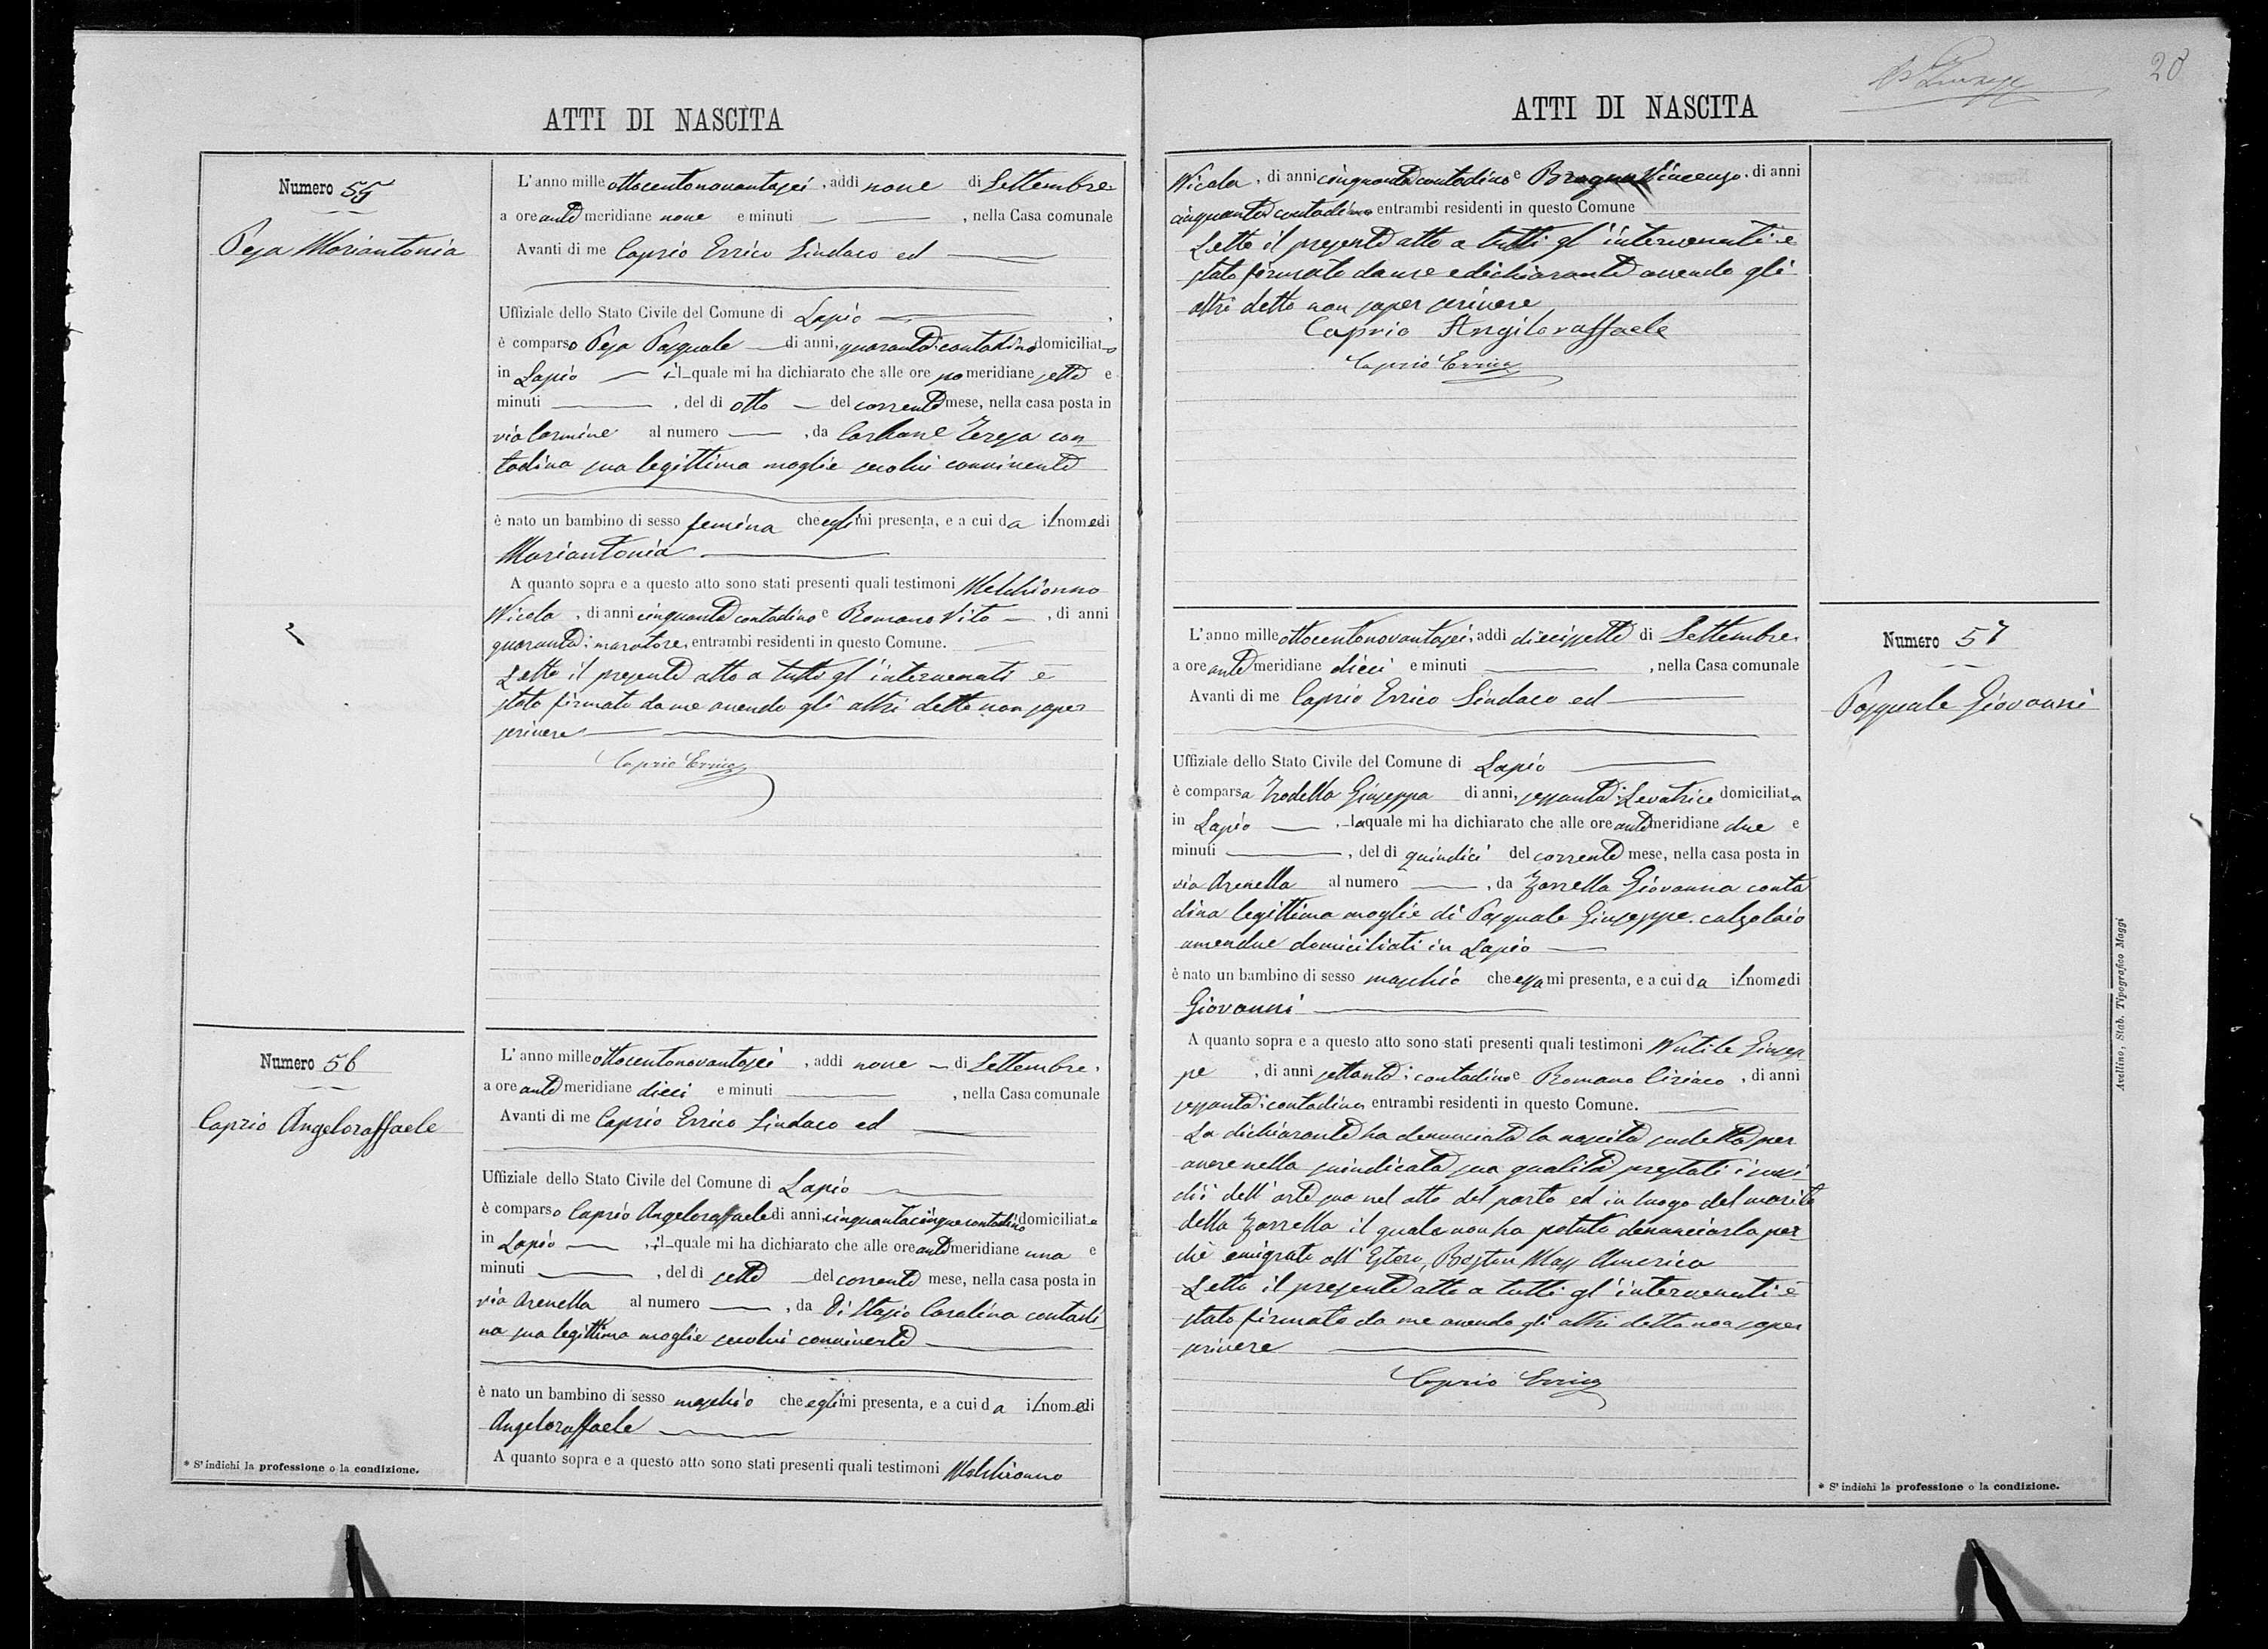 ATTI DI NASCITA
Numero 55
Pesa Mariantonia
L'anno mille ottocentonovantasei, addì nove di Settembre
a ore ante meridiane nove e minuti , nella Casa comunale
Avanti di me Caprio Errico Sindaco ed
Uffiziale dello Stato Civile del Comune di Lapio
è comparso Pesa Pasquale di anni, quaranta: contadino domiciliato
in Lapio il quale mi ha dichiarato che alle ore pomeridiane sette e
minuti , del dì otto del corrente mese, nella casa posta in
via Carmine al numero , da Carbone Teresa con
tadina sua legittima moglie secolui convivente
è nato un bambino di sesso femina che egli mi presenta, e a cui da il nome di
Mariantonia
A quanto sopra e a questo atto sono stati presenti quali testimoni Melchionno
Nicola, di anni cinquanta contadino e Romano Vito, di anni
quaranta: muratore, entrambi residenti in questo Comune.
Letto il presente atto a tutti gl'intervenuti è
stato firmato da me avendo gli altri detto non saper
scrivere
Caprio Errico
Numero 56
Caprio Angeloraffaele
L'anno mille ottocentonovantasei, addì nove di Settembre
a ore ante meridiane dieci e minuti , nella Casa comunale
Avanti di me Caprio Errico Sindaco ed
Uffiziale dello Stato Civile del Comune di Lapio
è comparso Caprio Angeloraffaele di anni cinquantacinque contadino domiciliato
in Lapio , il quale mi ha dichiarato che alle ore ante meridiane una e
minuti , del dì sette del corrente mese, nella casa posta in
via Arenella al numero , da Di Stasio Carolina contadi
na sua legittima moglie secolui convivente
è nato un bambino di sesso maschio che egli mi presenta, e a cui da il nome di
Angeloraffaele
A quanto sopra e a questo atto sono stati presenti quali testimoni Melchionno
* S'indichi la professione o la condizione.
20
ATTI DI NASCITA
Nicola, di anni cinquanta contadino e Bragna Vincenzo, di anni
cinquanta contadino entrambi residenti in questo Comune
Letto il presente atto a tutti gl'intervenuti è
stato firmato da me e dichiarante avendo gli
altri detto non saper scrivere
Caprio Angiloraffaele
Caprio Errico
Numero 57
Pasquale Giovanni
L'anno mille ottocentonovantasei, addì diecissette di Settembre
a ore ante meridiane dieci e minuti , nella Casa comunale
Avanti di me Caprio Errico Sindaco ed
Uffiziale dello Stato Civile del Comune di Lapio
è comparsa Trodella Giuseppa di anni, sessanta: Levatrice domiciliata
in Lapio , la quale mi ha dichiarato che alle ore ante meridiane due e
minuti , del dì quindici del corrente mese, nella casa posta in
via Arenella al numero , da Zarrella Giovanna conta
dina legittima moglie di Pasquale Giuseppe calzolaio
amendue domiciliati in Lapio
è nato un bambino di sesso maschio che essa mi presenta, e a cui da il nome di
Giovanni
A quanto sopra e a questo atto sono stati presenti quali testimoni Nutile Giusep
pe , di anni settanta: contadino e Romano Ciriaco, di anni
sessanta: contadino, entrambi residenti in questo Comune.
La dichiarante ha denunciata la nascita sudetta per
avere nella suindicata sua qualità prestati i sussi
dii dell'arte sua nel atto del parto ed in luogo del marito
della Zarrella il quale non ha potuto denunciarla per
chè emigrato all'Estero, Boston Mass America
Letto il presente atto a tutti gl'intervenuti è
stato firmato da me avendo gli altri detto non saper
scrivere
Caprio Errico
* S'indichi la professione o la condizione.
Avellino, Stab. Tipografico Maggi